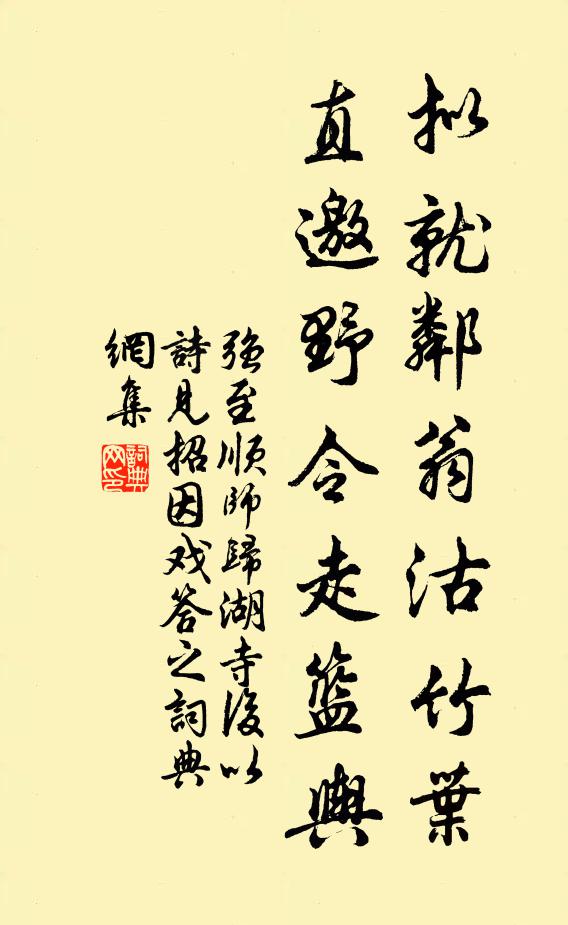 拟就鄰翁沽竹葉
直邀野令走籃輿
強至順師歸湖寺後以
詩見招因戏答之詞典
網集
詞典
网印